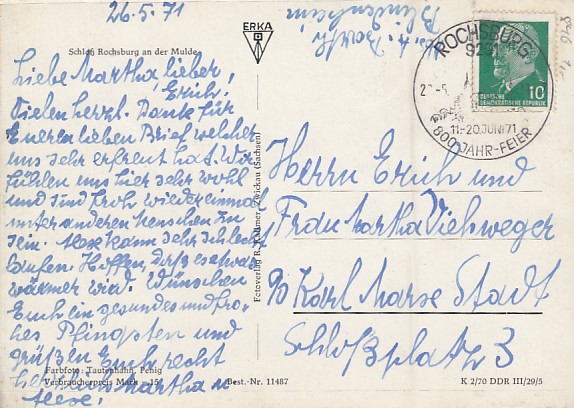 26.5.71
ERKA
Schloß Rochsburg an der Mulde
Liebe Martha, lieber
Erich!
Vielen herzl. Dank für
Eueren lieben Brief welcher
uns sehr erfreut hat. Wir
fühlen uns hier sehr wohl
und sind froh wieder einmal
unter anderen Menschen zu
sein. kann sehr schlecht
laufen. Hoffen, daß es etwas
wärmer wird. Wünschen
Euch ein gesundes und fro-
hes Pfingsten und
grüßen Euch recht
herzlich Martha u
Farbfoto: Tautenhahn, Penig
Verbraucherpreis Mark -,15
Best.-Nr. 11487
Fotoverlag R. Kallmer, Zwickau (Sachsen)
ROCHSBURG
9291
11.-20.JUNI 71
800 JAHR-FEIER
10
DEUTSCHE
DEMOKRATISCHE REPUBLIK
Herrn Erich und
Frau Martha Viehweger
90 Karl Marx Stadt
Schloßplatz 3
K 2/70 DDR III/29/5